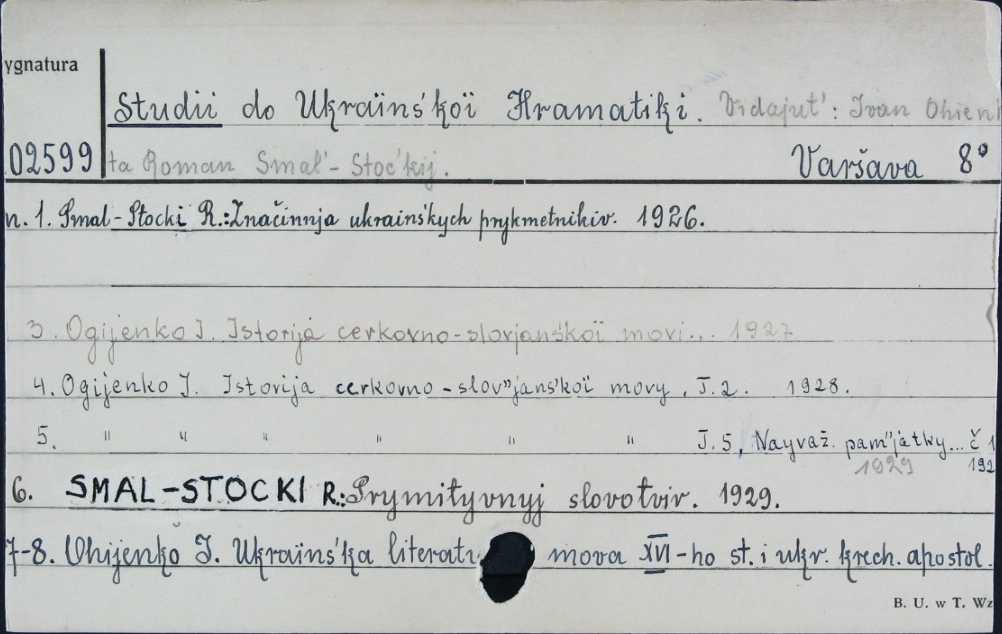 ygnatura
Studii do Ukraïns'koï Hramatiki. Vidajut': Ivan Ohien
02599 ta Roman Smal'-Stoc'kij. Varšava 8°
n. 1. Smal-Stocki R.: Značinnja ukrains'kych prykmetnikiv. 1926.
3. Ogijenko I. Istorija cerkovno-slovjans'koï movi... 1927
4. Ogijenko I. Istorija cerkovno-slov"jans'koï movy, T.2. 1928.
5. " " " " " " T.5, Nayvaž. pam"jatky... č 1
1929 192
6. SMAL-STOCKI R.: Prymityvnyj slovotvir. 1929.
7-8. Ohijenko I. Ukraïns'ka literat mova XVI-ho st. i ukr. krech. apostol.
B. U. w T. Wz